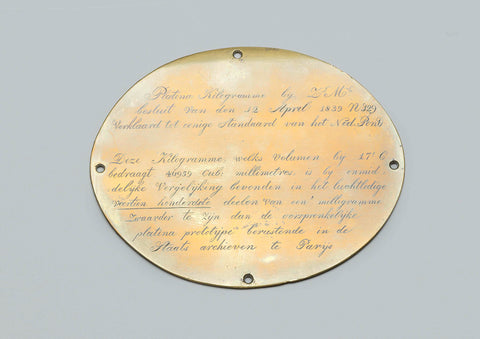 Platena Kilogramme by Z. Ms
besluit van den 12 April 1839 No 129
Verklaard tot eenige Standaard van het Ned. Pond
Deze Kilogramme, welks volumen by 17° C
bedraagt 46939 Cub: millimetres. is by onmid-
delyke Vergelyking bevonden in het luchtledige
veertien honderdste deelen van een milligramme
zwaarder te zijn dan de oorspronkelyke
platena prototype berustende in de
Staats archieven te Parys